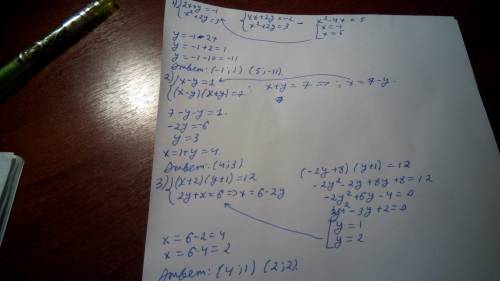 1) { 2x+y=-1   { 4x+2y=-2   -   x²-4x=5
{ x²+2y=3   { x²+2y=3   [ x=-1
[ x=5
y=-1-2x
y=-1+2=1
y=-1-10=-11
Ответ: (-1;1) (5;-11)
2) { x-y=1
{ (x-y)(x+y)=7   x+y=7 => x=7-y
7-y-y=1
-2y=-6
y=3
x=1+y=4
Ответ: (4;3)
3) { (x+2)(y+1)=12
{ 2y+x=6 => x=6-2y
(-2y+8)(y+1)=12
-2y²-2y+8y+8=12
-2y²+6y-4=0
y²-3y+2=0
[ y=1
[ y=2
x=6-2=4
x=6-4=2
Ответ: (4;1) (2;2)